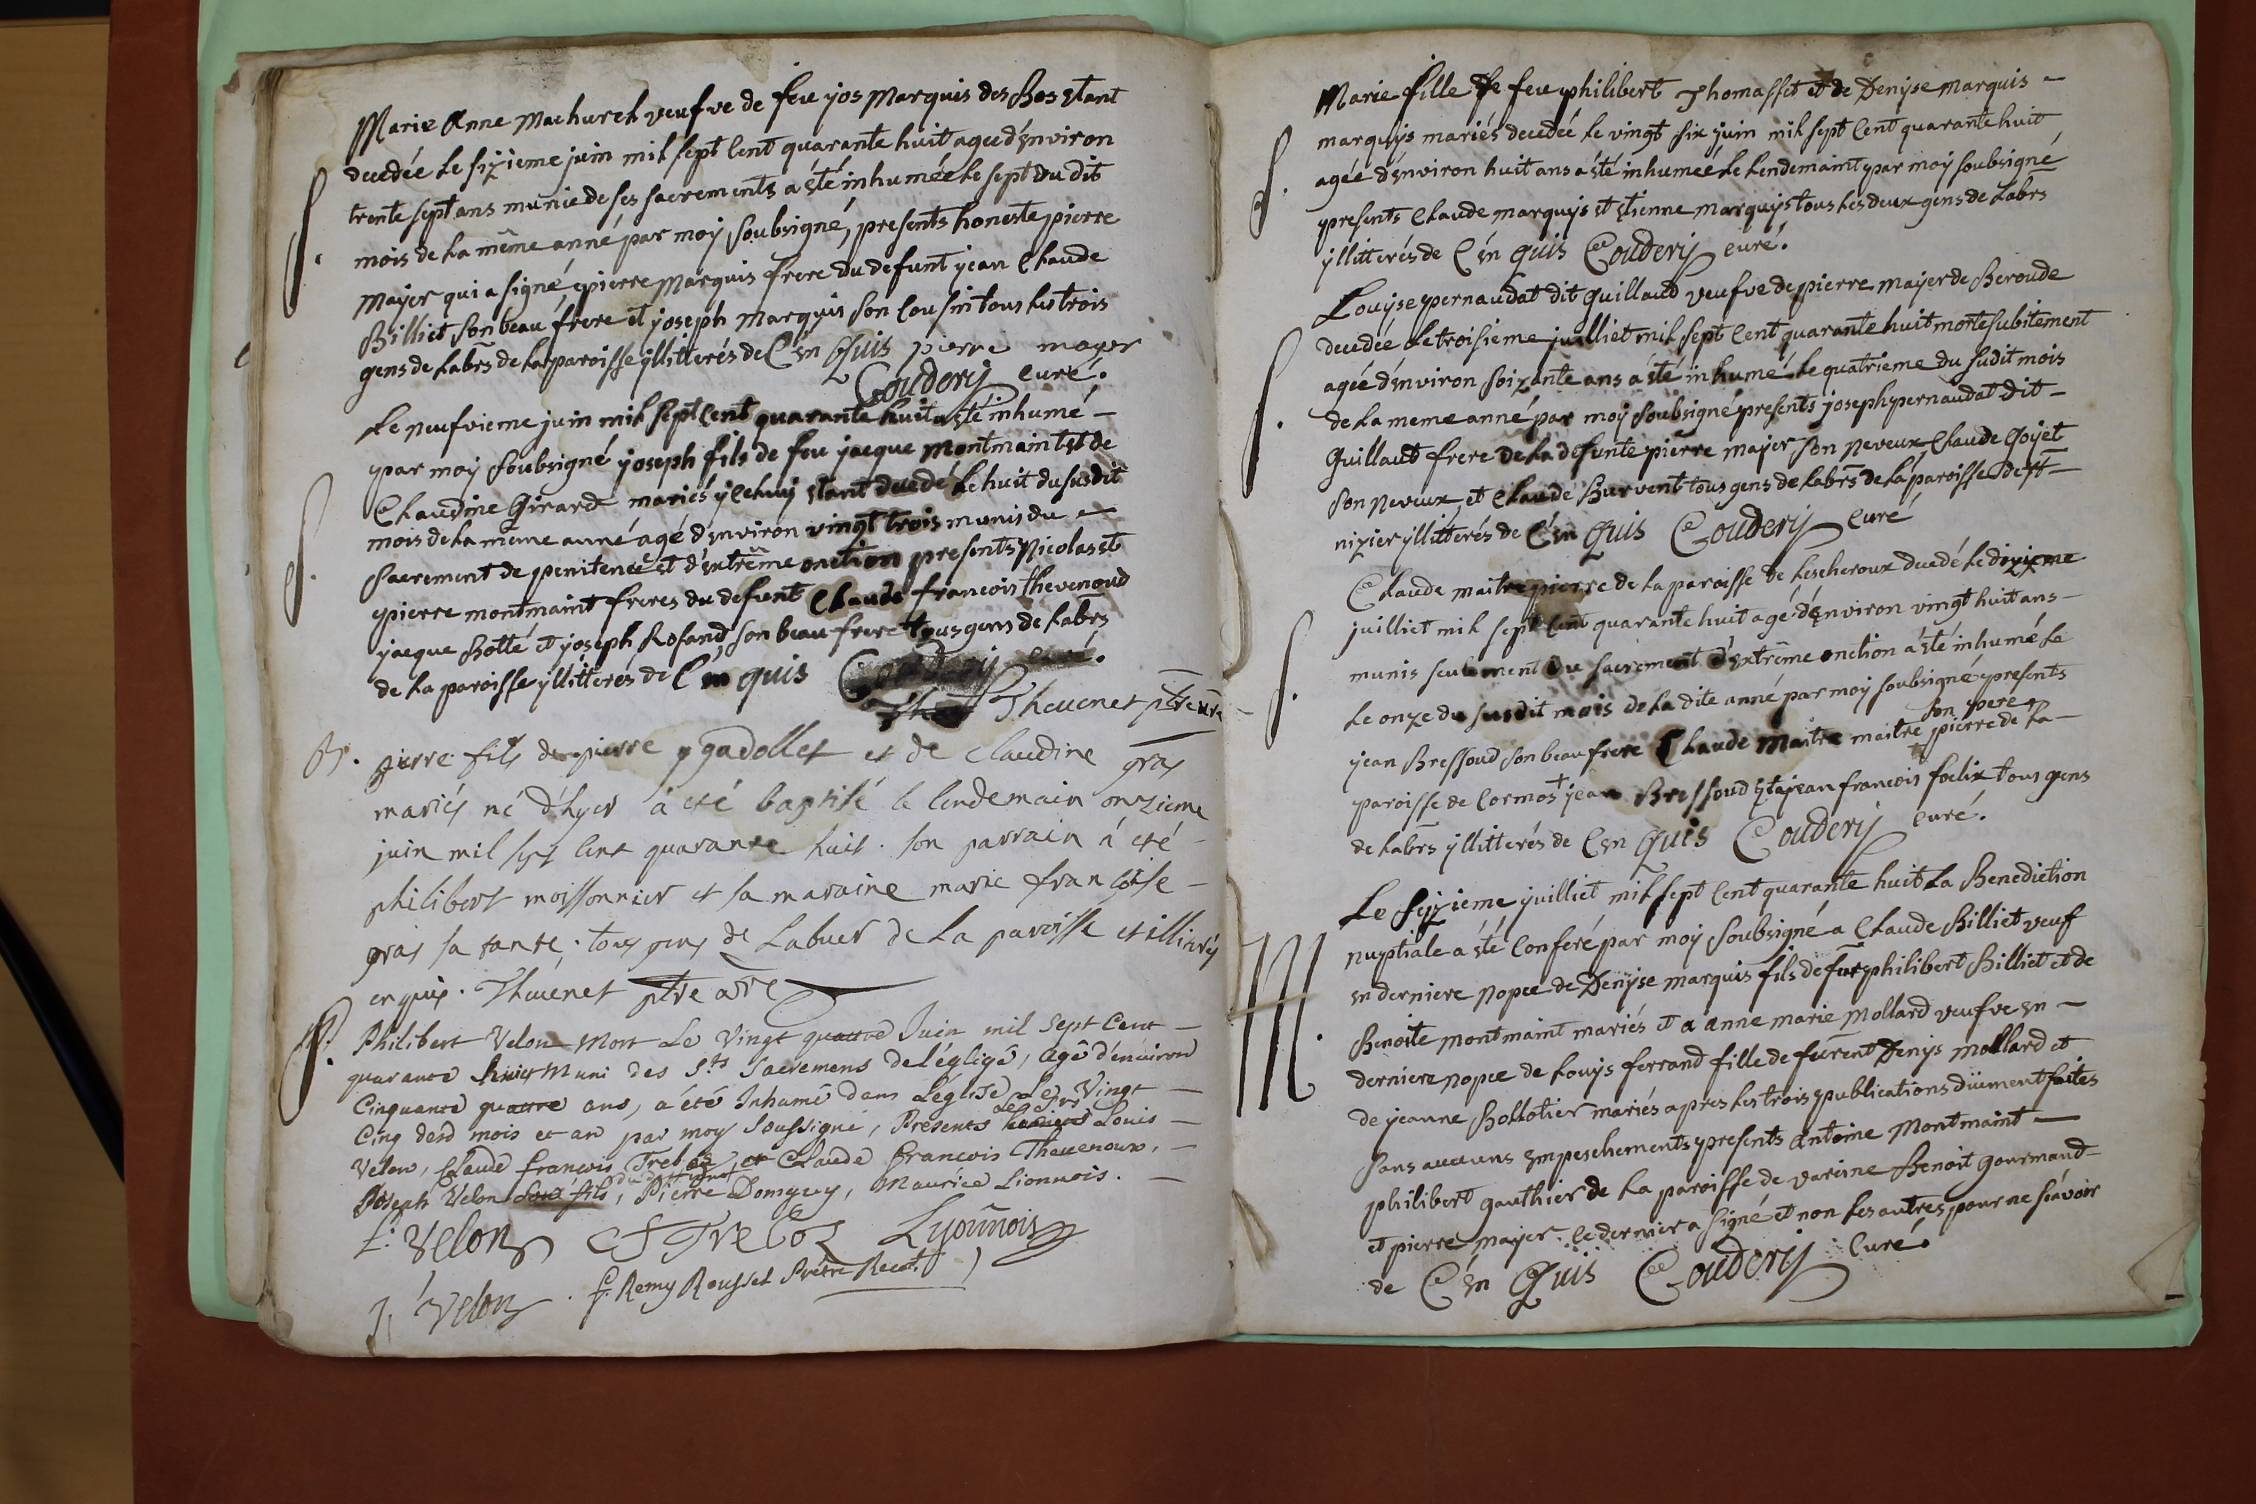 Marie Anne Machurek veufve de feu jos Marquis des Bos etant
decedée le sizieme juin mil sept cent quarante huit agee d'environ
trente sept ans munie de ses sacrements a été inhumée le sept du dit
mois de la même anné par moy soubsigné, presents honeste pierre
Mayer qui a signé, pierre Marquis frere du defunt jean Claude
Billiet son beau frere et joseph Marquis son cousin tous les trois
gens de labrs de la paroisse yllitterés de C en Quis pierre mayer
Couderij curé.
S.
Le neufvieme juin mil sept cent quarante huit a été inhumé –
par moy soubsigné joseph fils de feu jacque Montmaint et de
Claudine Girard mariés yceluy etant decedé le huit du susdit
mois de la même anné agé d'environ vingt trois munis du –
Sacrement de penitence et d'extrême onction presents Nicolas et
pierre montmaint freres du defunt Claude francois thevenoud
jacque Botté et joseph Rosand son beau frere tous gens de labrs
de la paroisse yllitterés de C en quis Couderij curé.
Thevenet ptre vre
S.
B. pierre fils de pierre pgadollet et de Claudine gras
mariés né d'hyer à eté baptisé le lendemain onzieme
juin mil sept cent quarante huit. son parrain à eté –
philibert moissonnier et sa maraine marie françoise –
gras sa tante; tous gens de Labuer de La paroisse et illiterés
enquis. Thevenet ptre vre
S.
Philibert Velon Mort Le Vingt quattre Juin mil Sept Cent –
quarante huit Muni des Sts Sacremens de l'église, agé d'environ
Cinquante quattre ans, a été Inhumé dans L'église Le Vingt –
Cinq desd mois et an par moy Soussigné, Présents Louis –
Velon, Claude francois Treboz, et Claude francois Thevenoux, –
Joseph Velon fils, Pierre Domgey, Maurice Lionnois. –
L. Velon CF Treboz Lyonnois
J. Velon. f. Remy Rousset Prêtre Recol.
Marie fille de feu philibert Thomasset et de Denyse marquis –
marquys mariés decedée le vingt six juin mil sept cent quarante huit
agée d'environ huit ans a été inhumée le lendemaint par moy soubsigné
presents Claude marquys et Etienne marquys tous les deux gens de labrs
yllitterés de C en quis Couderij curé.
S.
Louyse pernaudat dit guillaud veufve de pierre mayer de Beroude
decedée le troisieme juilliet mil sept cent quarante huit morte subitement
agée d'environ soizante ans a été inhumé le quatrieme du sudit mois
de la meme anné par moy soubsigné presents joseph pernaudat dit –
Guillaud frere de la defunte pierre mayer son neveux Claude Goyet
son neveux, et Claude Burvent tous gens de labrs de la paroisse de St –
nizier yllitterés de C en Quis Couderij curé
S.
Claude maitrepierre de la paroisse de lescheroux decedé le dixieme
juilliet mil sept cent quarante huit agé d'environ vingt huit ans –
munis seulement du sacrement d'extrême onction a été inhumé le
le onze du susdit mois de la dite anné par moy soubsigné presents
son pere
jean Bressoud son beau frere Claude Maitre maitre pierre de la –
paroisse de Cormos + jean Bressoud et jean francois foelix tous gens
de labrs yllitterés de C en Quis Couderij curé.
S.
Le sezieme juilliet mil sept cent quarante huit La Benediction
nuptiale a été conferé par moy soubsigné a Claude Billiet veuf
en derniere nopce de Denyse marquis fils de fut philibert Billiet et de
Benoite montmaint mariés et a anne marie Mollard veufve en –
derniere nopce de Louys ferrand fille de furent Denys mollard et
de jeanne Bollotier mariés apres les trois publications düement faites
sans aucuns empeschements presents Antoine Montmaint –
philibert gauthier de la paroisse de vareine Benoit gourmand –
et pierre mayer. ce dernier a signé et non les autres pour ne sçavoir
de C en Quis Couderij curé.
M.